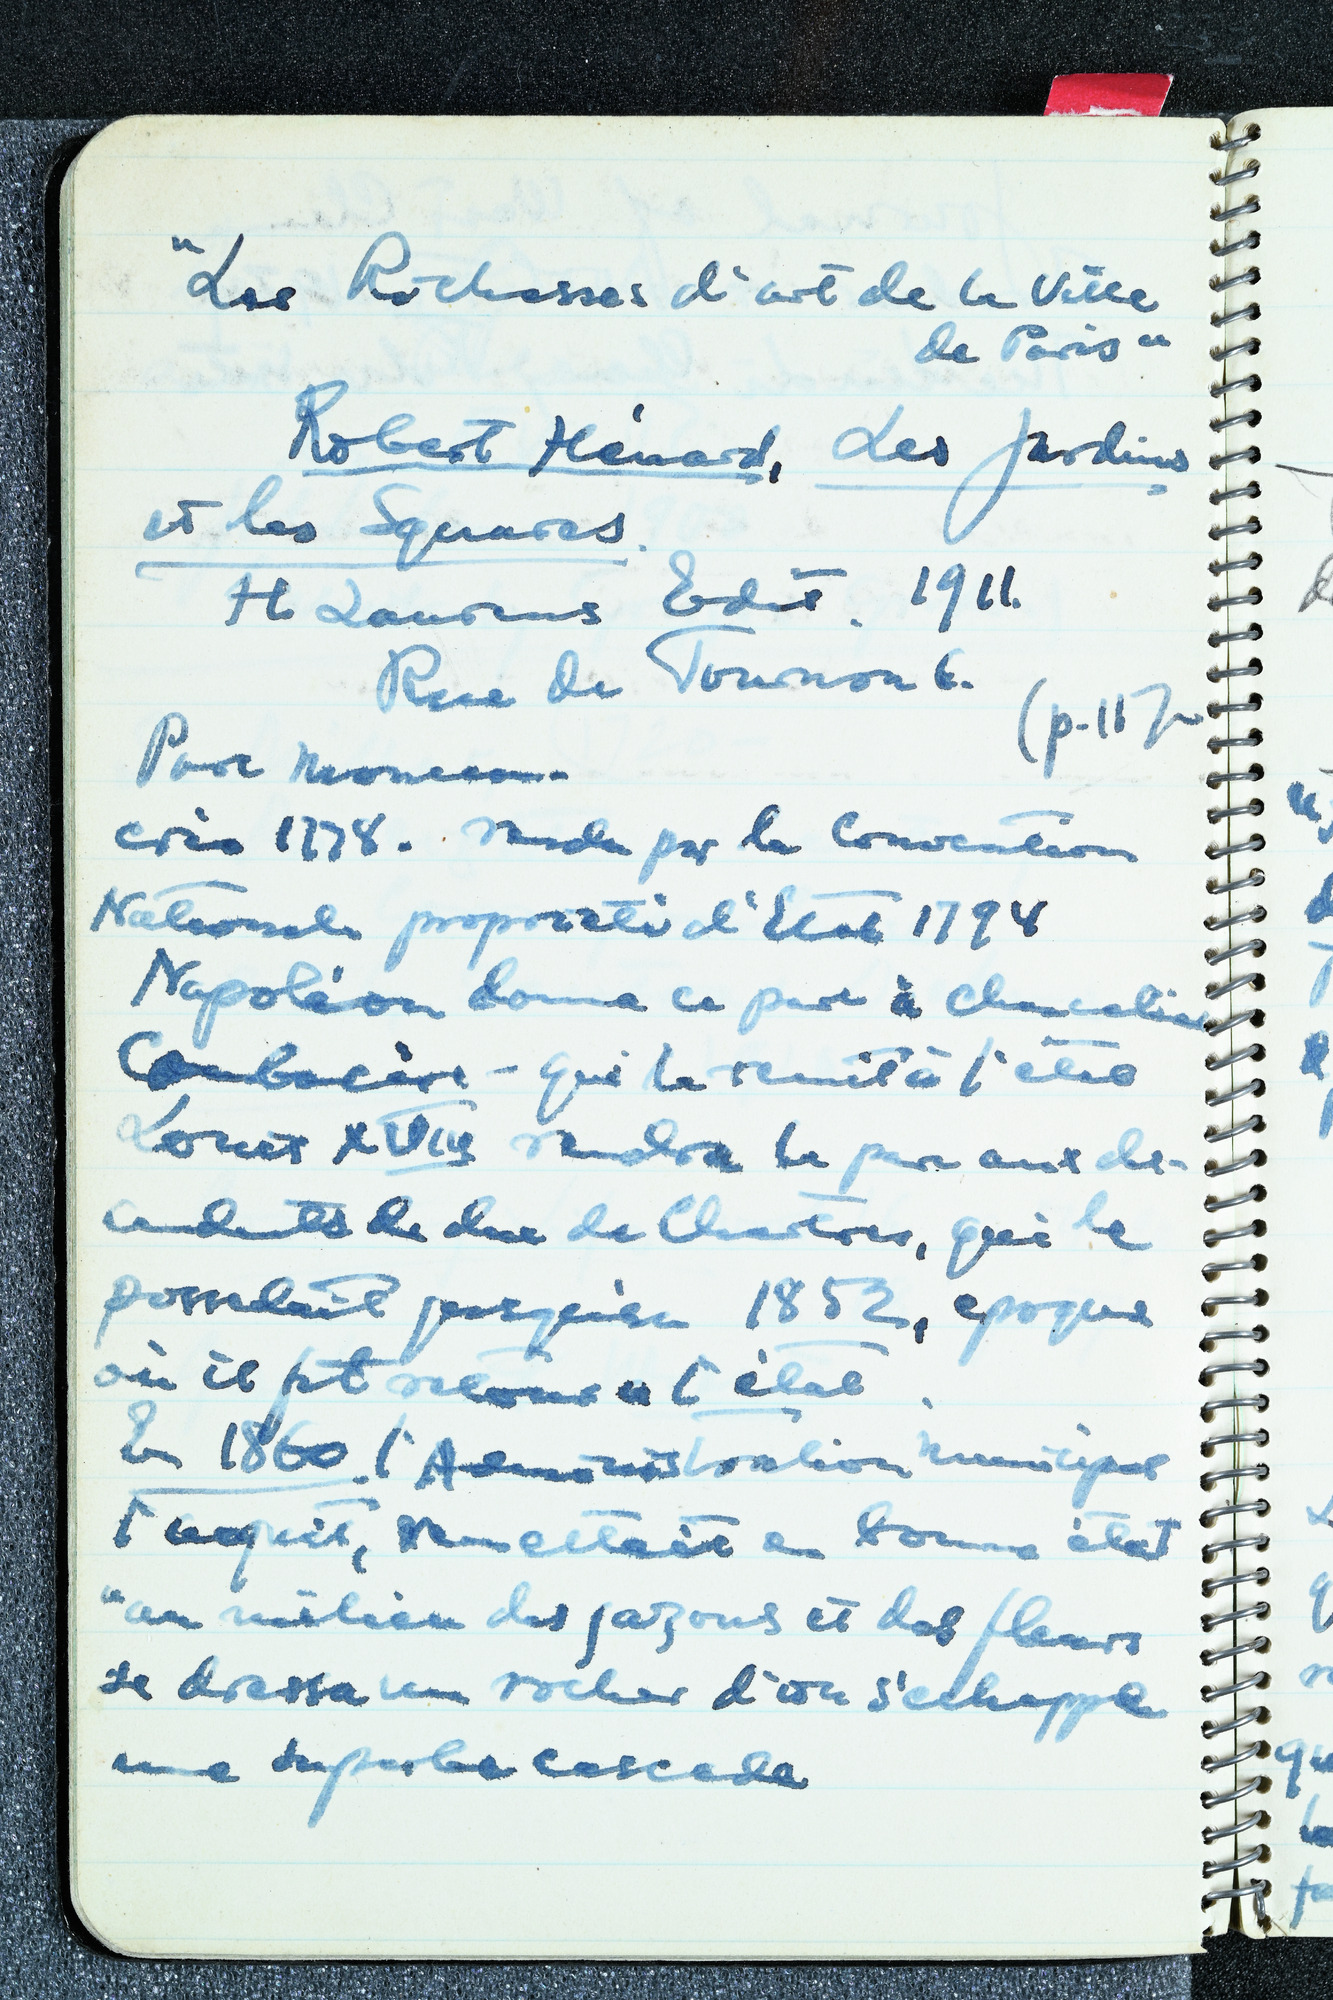 "Les Richesses d'art de la Ville
de Paris"
Robert Hénard, Les Jardins
et les Squares.
H Laurens Edit. 1911.
Rue de Tournon 6.
(p. 117
Parc Monceau.
crée 1778. rendu par la Convention
Nationale propriété d'Etat 1794
Napoléon donne ce parc à
Cambacère - qui le remit à l'état
Louis XVIII rendra le parc aux des-
cendants de duc de Chartres, qui le
possedait jusqu'en 1852, epoque
où il fit retour a l'état.
En 1860 l'Administration municipal
l'acquit, remettait en bonne état
"au milieu des gazons et des fleurs
se dressa un rocher d'ou s'echappe
une superbe cascade